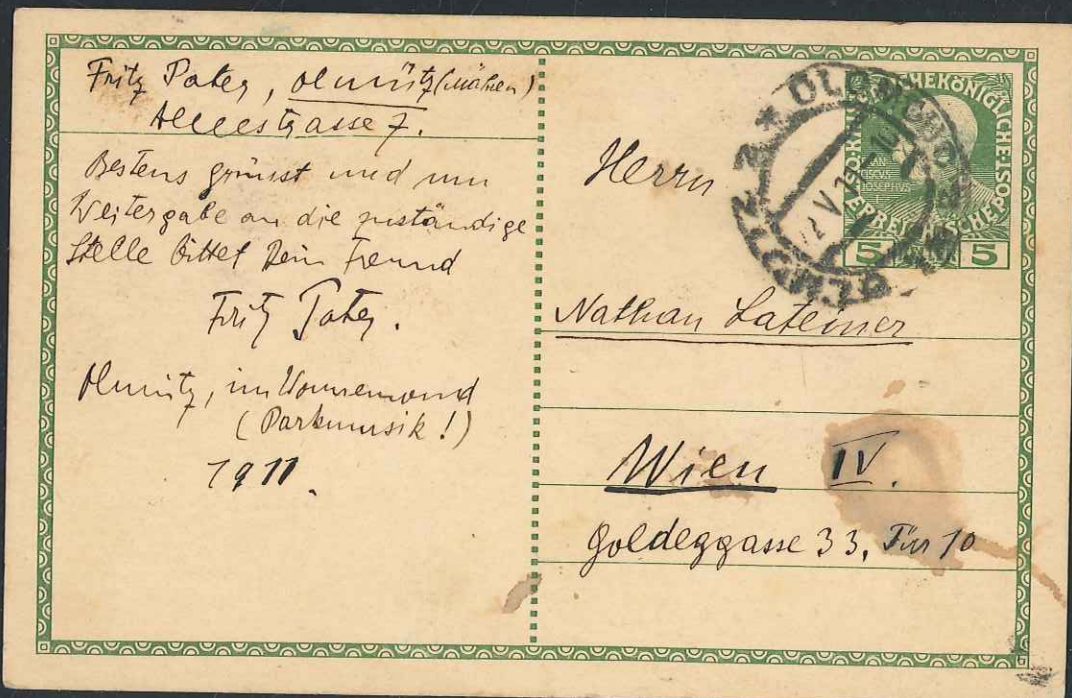 Fritz Pater, Olmütz (Mähren)
Alleestrasse 7.
Bestens grüsst und um
Weitergabe an die zuständige
Stelle bittet Dein Freund
Fritz Pater.
Olmütz, im Wonnemond
(Parkmusik!)
1911.
Herrn
Nathan Lateiner
Wien IV.
Goldeggasse 33, Tür 10
5 5
OLMÜTZ 2